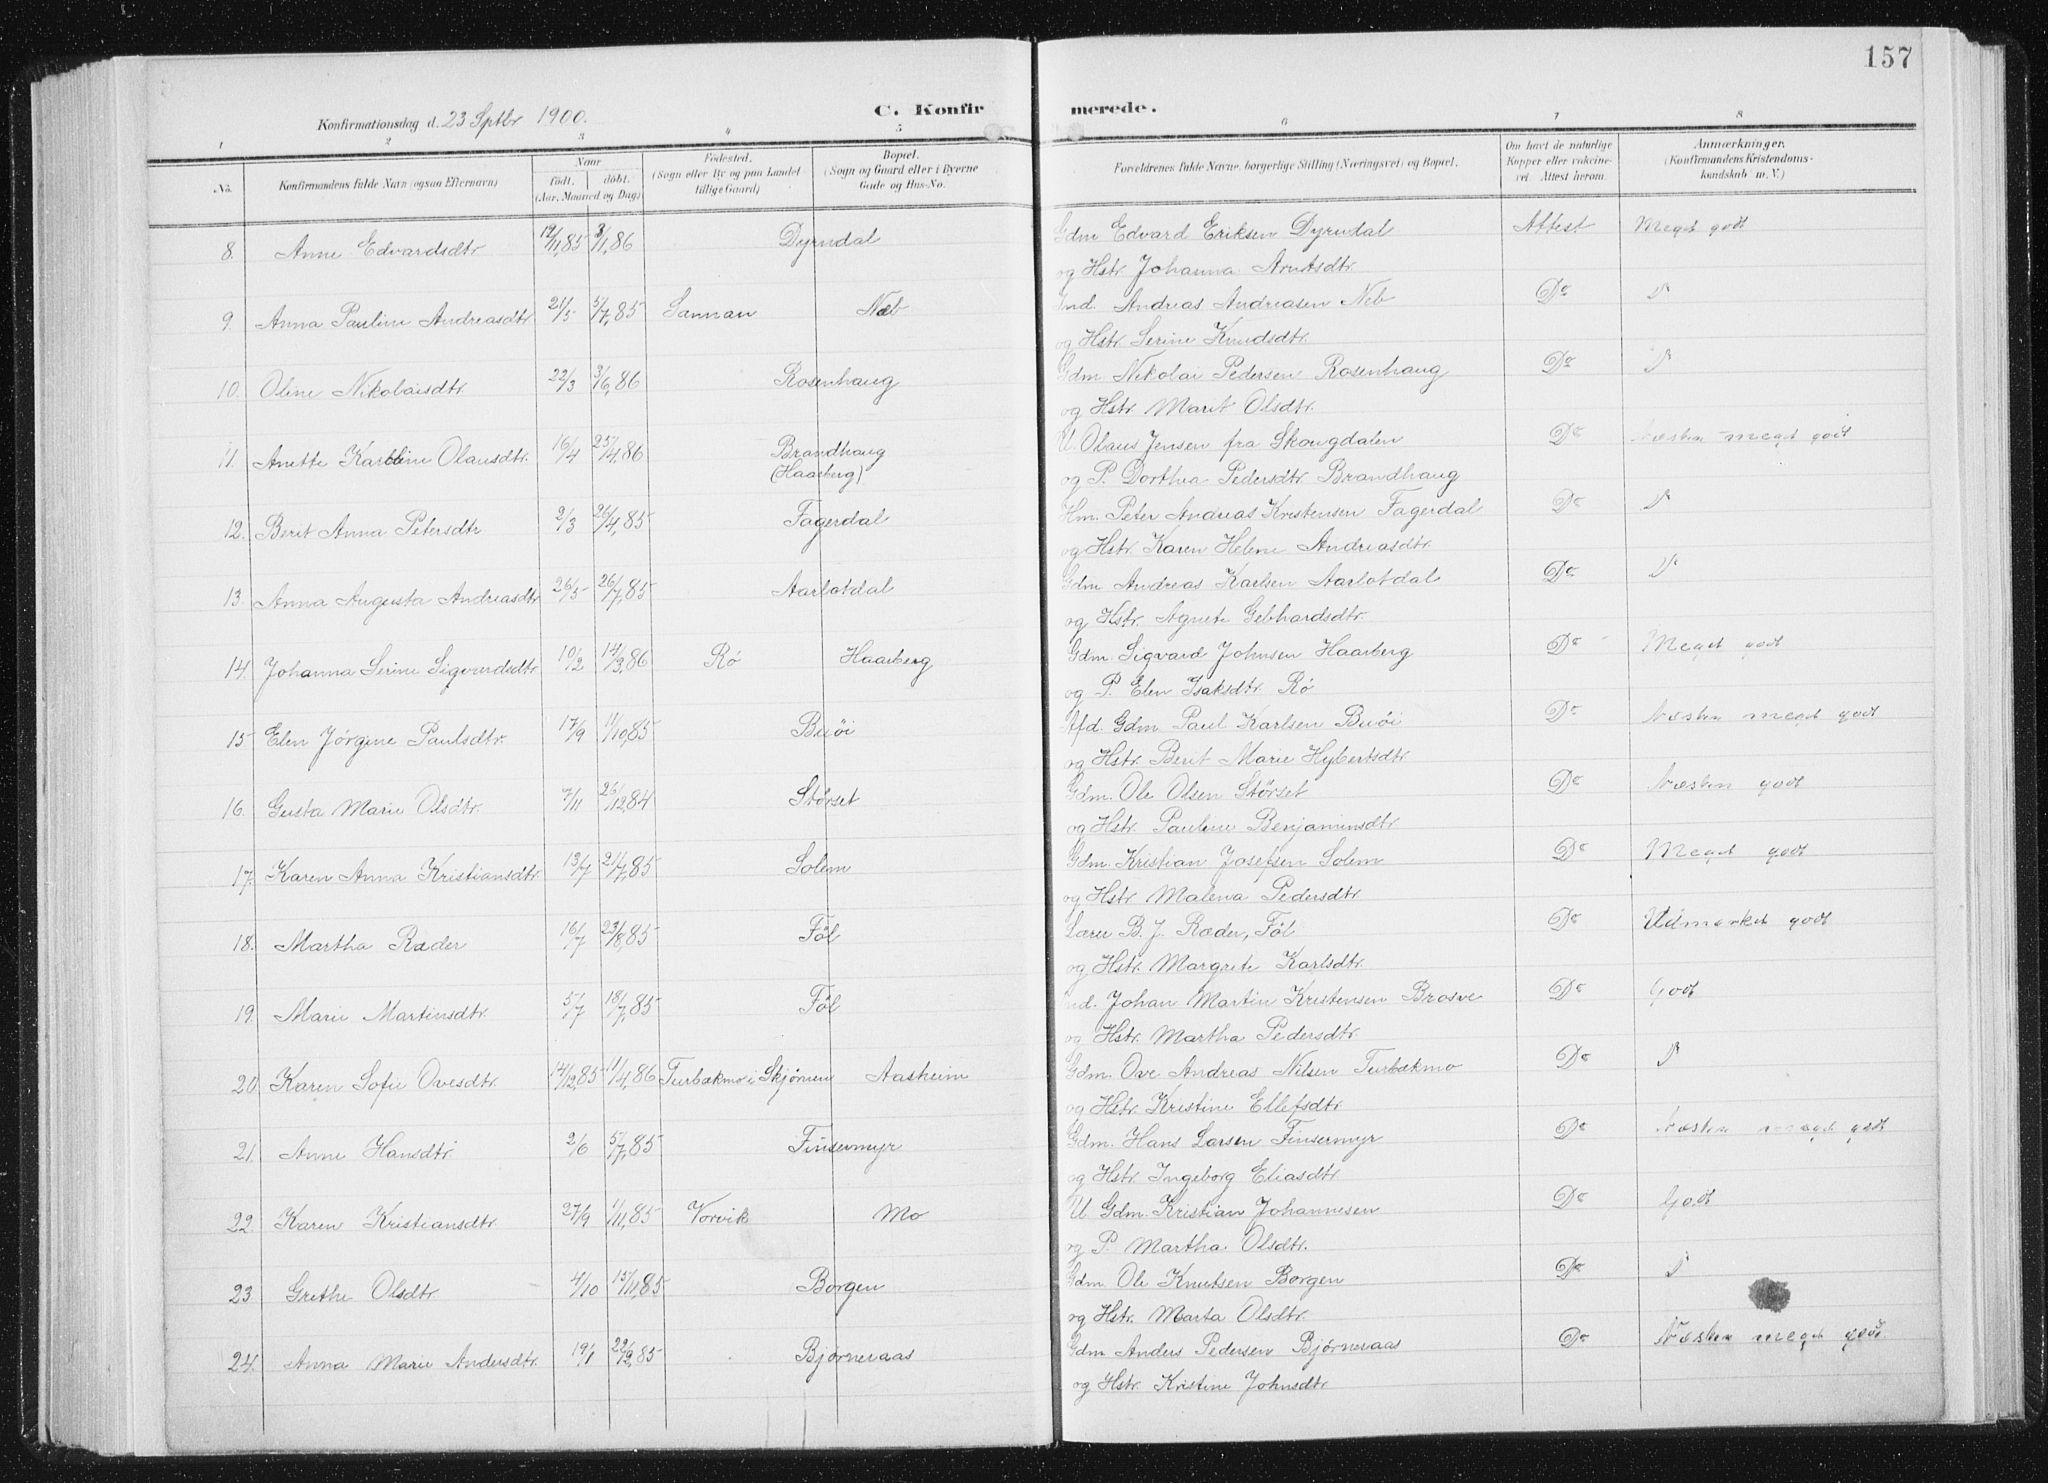 157
Konfirmationsdag d. 23 Sptbr 1900. C. Konfirmerede.
1 2 3 4 5 6 7 8
No. Konfirmandens fulde Navn (ogsaa Efternavn) Naar født. døbt. (Aar, Maaned og Dag) Fødested. (Sogn eller By og paa Landet tillige Gaard) Bopæl. (Sogn og Gaard eller i Byerne Gade og Hus-No. Forældrenes fulde Navne, borgerlige Stilling (Næringsvei) og Bopæl. Om havt de naturlige Kopper eller vaksineret. Attest herom. Anmærkninger. (Konfirmandens Kristendomskundskab m. V.)
8. Anne Edvardsdtr 12/11,85 3/1,86 Dyrndal Gdm Edvard Eriksen Dyrndal Attest Meget godt
og Hstr. Johanna Arntsdtr.
9. Anna Pauline Andreasdtr 21/5 5/7,85 Sannan Næb Ind. Andreas Andreasen Neb Do D
og Hstr. Serine Knudsdtr.
10. Oline Nikolaisdtr. 22/3 3/6,86 Rosenhaug Gdm. Nikolai Pedersen Rosenhaug Do D
og Hstr. Marit Olsdtr.
11. Anette Karoline Olausdtr. 16/4 25/4,86 Brandhaug (Haarberg) U. Olaus Jensen fra Skougdalen Do Næsten meget godt
og P. Dorthea Pedersdtr Brandhaug
12. Berit Anna Petersdtr 2/3 26/4,85 Fagerdal Hm. Peter Andreas Kristensen Fagerdal Do D
og Hstr. Karen Helene Andreasdtr.
13. Anna Augusta Andreasdtr 26/5 26/7,85 Aarlotdal Gdm Andreas Karlsen Aarlotdal Do D
og Hstr. Agnete Gebhardsdtr.
14. Johanna Serine Sigvardsdtr 10/2 14/3,86 Rö Haarberg Gdm. Sigvard Johnsen Haarberg Do Meget godt
og P. Elen Isaksdtr. Rö
15 Elen Jørgine Paulsdtr. 17/9 11/10,85 Buöi Afd. Gdm. Paul Karlsen Buöi Do Næsten meget godt
og Hstr. Berit Marie Hybertsdtr.
16. Gusta Marie Olsdtr. 7/11 26/12,84 Størset Gdm. Ole Olsen Størset Do Næsten godt
og Hstr. Pauline Benjaminsdtr
17. Karen Anna Kristiansdtr. 13/7 21/7,85 Solem Gdm. Kristian Josefsen Solem Do Meget godt
og Hstr. Malena Pedersdtr.
18. Martha Ræder 16/7 23/8,85 Föl Lærer B. J. Ræder, Föl Do Udmærket godt
og Hstr. Margrete Karlsdtr.
19. Marie Martinsdtr. 5/7 18/7,85 Föl Ind. Johan Martin Kristensen Brosve Do Godt
og Hstr. Martha Pedersdtr.
20. Karen Sofie Ovesdtr. 14/12,85 11/4,86 Turbækmo i Skjørnen Aasheim Gdm. Ove Andreas Nilsen Turbækmo Do D
og Hstr. Kristine Ellefsdtr.
21. Anne Hansdtr. 2/6 5/7,85 Finsermyr Gdm. Hans Larsen Finsermyr Do Næsten meget godt
og Hstr. Ingeborg Eliasdtr.
22. Karen Kristiansdtr. 27/9 1/11,85 Vorvik Mo U. Gdm. Kristian Johannesen Do Godt
og P. Martha Olsdtr.
23. Grethe Olsdtr. 4/10 15/11,85 Borgen Gdm Ole Knutsen Borgen Do D
og Hstr. Marta Olsdtr.
24. Anna Marie Andersdtr. 19/1 22/2,85 Bjørneraas Gdm Anders Pedersen Bjørneraas Do Næsten meget godt
og Hstr. Kristine Johnsdtr